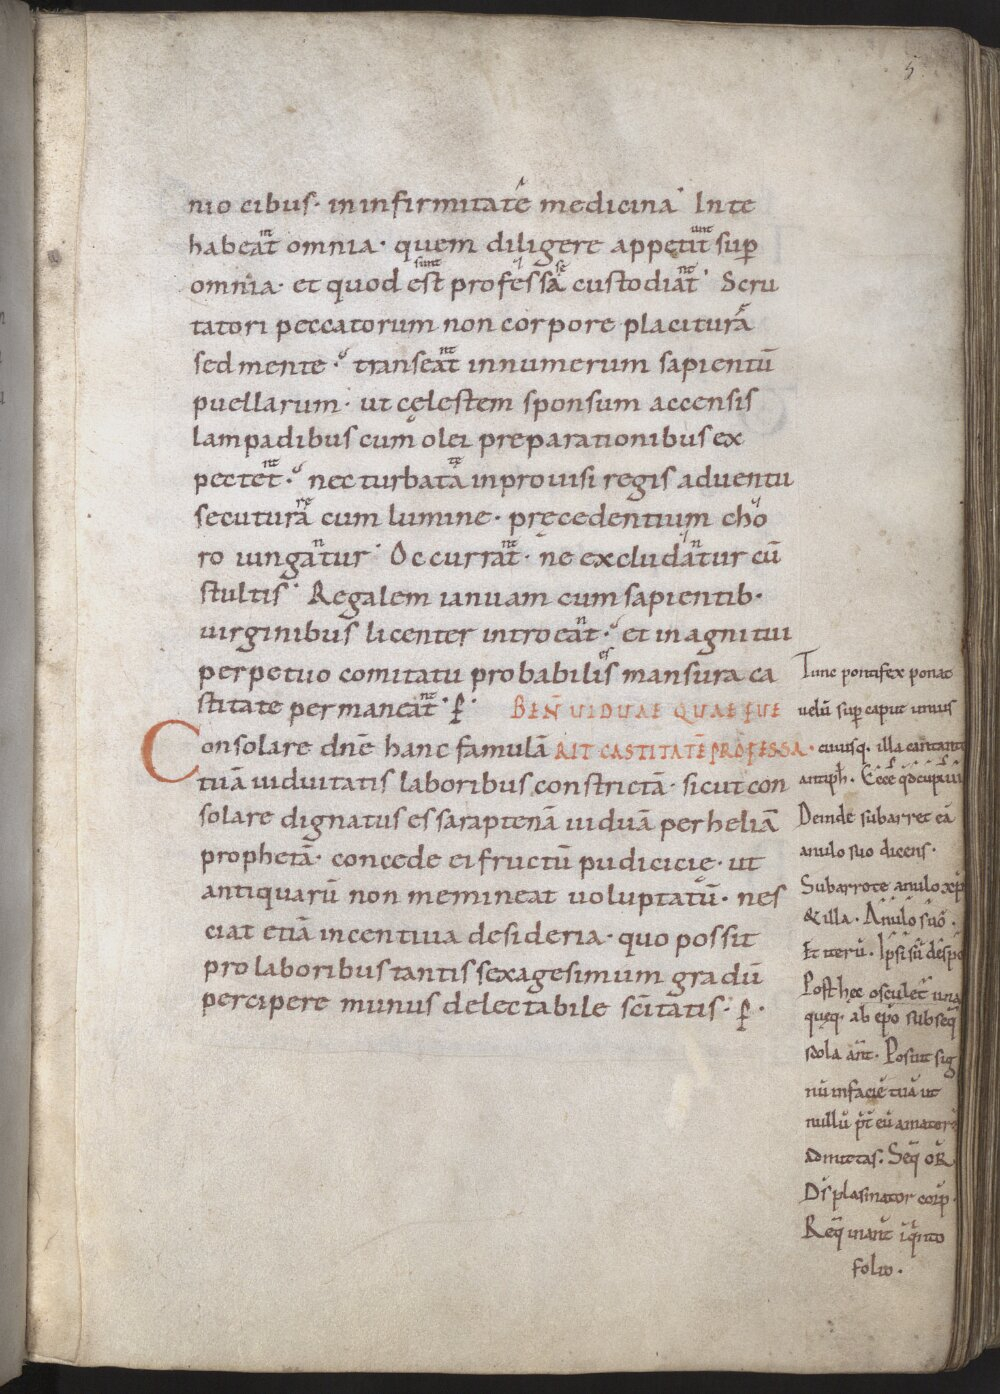 5
nio cibus· in infirmitate medicina· In te
habeat omnia· quem diligere appetit sup̄
omnia· et quod est professa custodiat· Scru
tatori peccatorum non corpore placitura
sed mente· transeat in numerum sapientū
puellarum· ut cęlestem sponsum accensis
lampadibus cum olei preparationibus ex
pectet· nec turbata inprouisi regis aduentu
secutura cum lumine· pręcedentium cho
ro iungantur· Occurrat· ne excludantur cū
stultis· Regalem ianuam cum sapientib·
uirginibus licenter introeat· et in agni tui
perpetuo comitatu probabilis mansura ca
stitate permaneat· ꝑ·
BEÑ UIDUAE QUAE FUE
RIT CASTITATĒ PROFESSA·
Consolare dn̄e hanc famulā
tuā uiduitatis laboribus constrictā· sicut con
solare dignatus es saraptenā uiduā per heliā
prophetā· concede ei fructū pudicicię· ut
antiquarū non memineat uoluptatū· nes
ciat etiā incentiua desideria· quo possit
pro laboribus tantis sexagesimum gradū
percipere munus delectabile sc̄itatis· ꝑ·
Tunc pontifex ponat
uelū sup̄ caput unius
cuiusq· illa cantante
antiph̄·
Deinde subarret eā
anulo suo dicens·
Subarrote anulo xp̄i
& illa· Anulo suo·
Et iterū· Ipsi sū despo
Post hęc osculet̄ una
quęq· ab ep̄o subseq̄
scola ant̄· Posuit sig
nū in facię tuā ut
nullū p̄t eū amatorē
admittas· Seq̄ OR̄
Ds̄ plasmator corp̄·
Req̄ in ant̄ iq̄nto
folio·